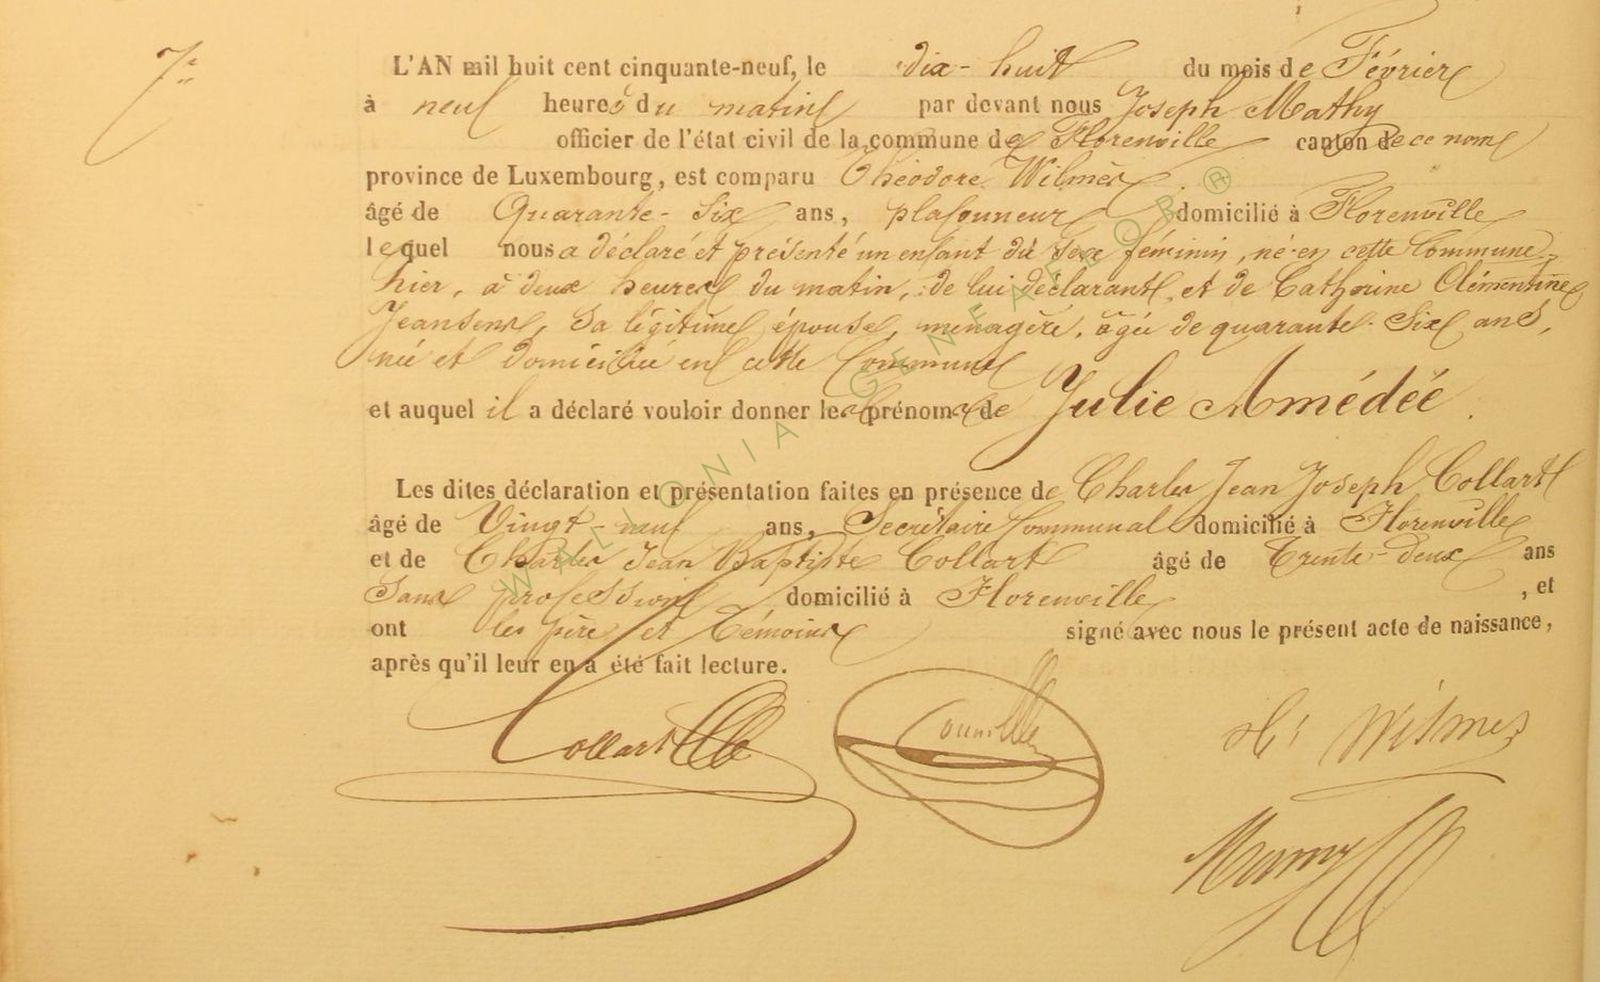 7e
L'AN mil huit cent cinquante-neuf, le dix-huit du mois de Février
à neuf heures du matin par devant nous Joseph Mathy
officier de l'état civil de la commune de Florenville canton de ce nom
province de Luxembourg, est comparu Théodore Wilmès
âgé de Quarante-Six ans, plafonneur domicilié à Florenville
lequel nous a déclaré et présenté un enfant du sexe féminin, né en cette Commune,
hier, à deux heures du matin, de lui déclarant, et de Catherine Clémentine
Jeansens, Sa légitime épouse, ménagère, âgée de quarante-Six ans,
née et domiciliée en cette Commune
et auquel il a déclaré vouloir donner les prénoms de Julie Amédéé.
Les dites déclaration et présentation faites en présence de Charles Jean Joseph Collart
âgé de Vingt-neuf ans, Secrétaire Communal domicilié à Florenville
et de Charles Jean Baptiste Collart âgé de Trente-deux ans
Sans profession domicilié à Florenville, et
ont les père et Témoins signé avec nous le présent acte de naissance,
après qu'il leur en a été fait lecture.
Collart Wilmes
WALLONIA GENEAFEOR ®